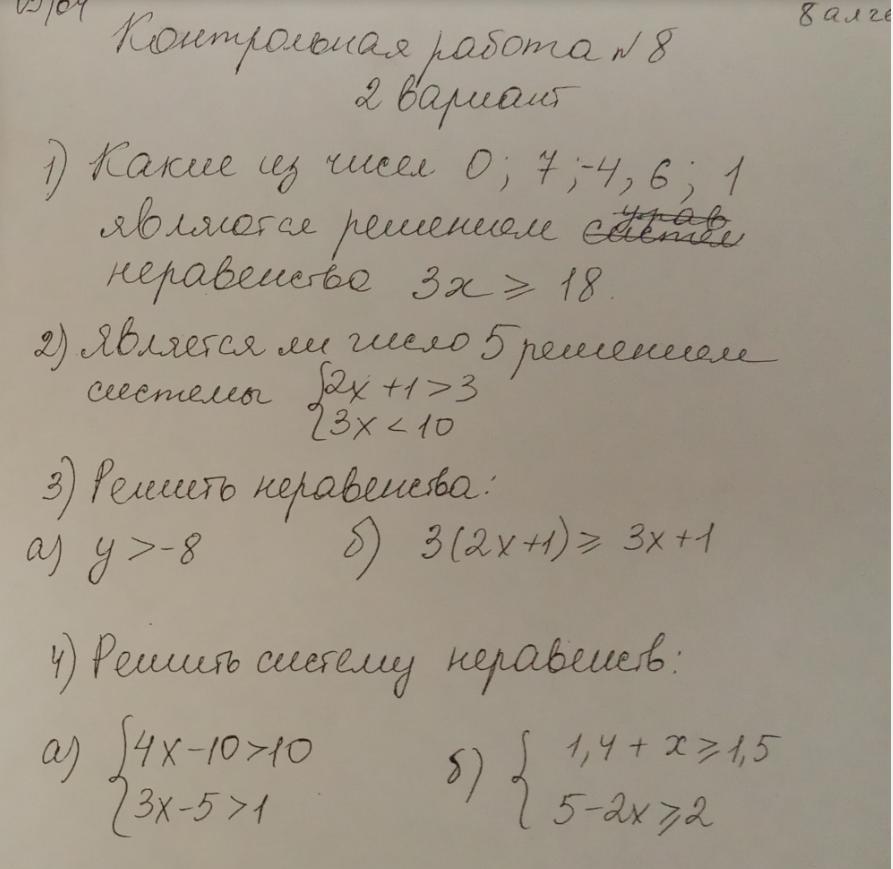 8 алге
Контрольная работа N 8
2 вариант
1) Какие из чисел 0; 7; -4, 6; 1
являются решением
неравенства 3x ≥ 18.
2) Является ли число 5 решением
системы {2x + 1 > 3
{3x < 10
3) Решить неравенства:
а) y > -8 б) 3(2x+1) ≥ 3x+1
4) Решить систему неравенств:
а) {4x-10>10 б) {1,4 + x ≥ 1,5
{3x-5>1 {5-2x ≥ 2